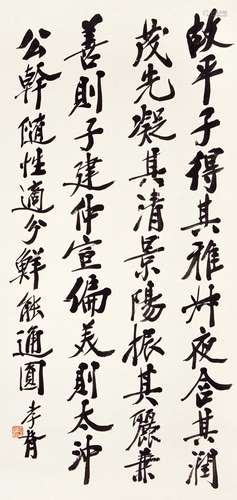 故平子得其雅叔夜含其潤
茂先凝其清景陽振其麗兼
善則子建仲宣偏美則太沖
公幹隨性適分鮮能通圓 李